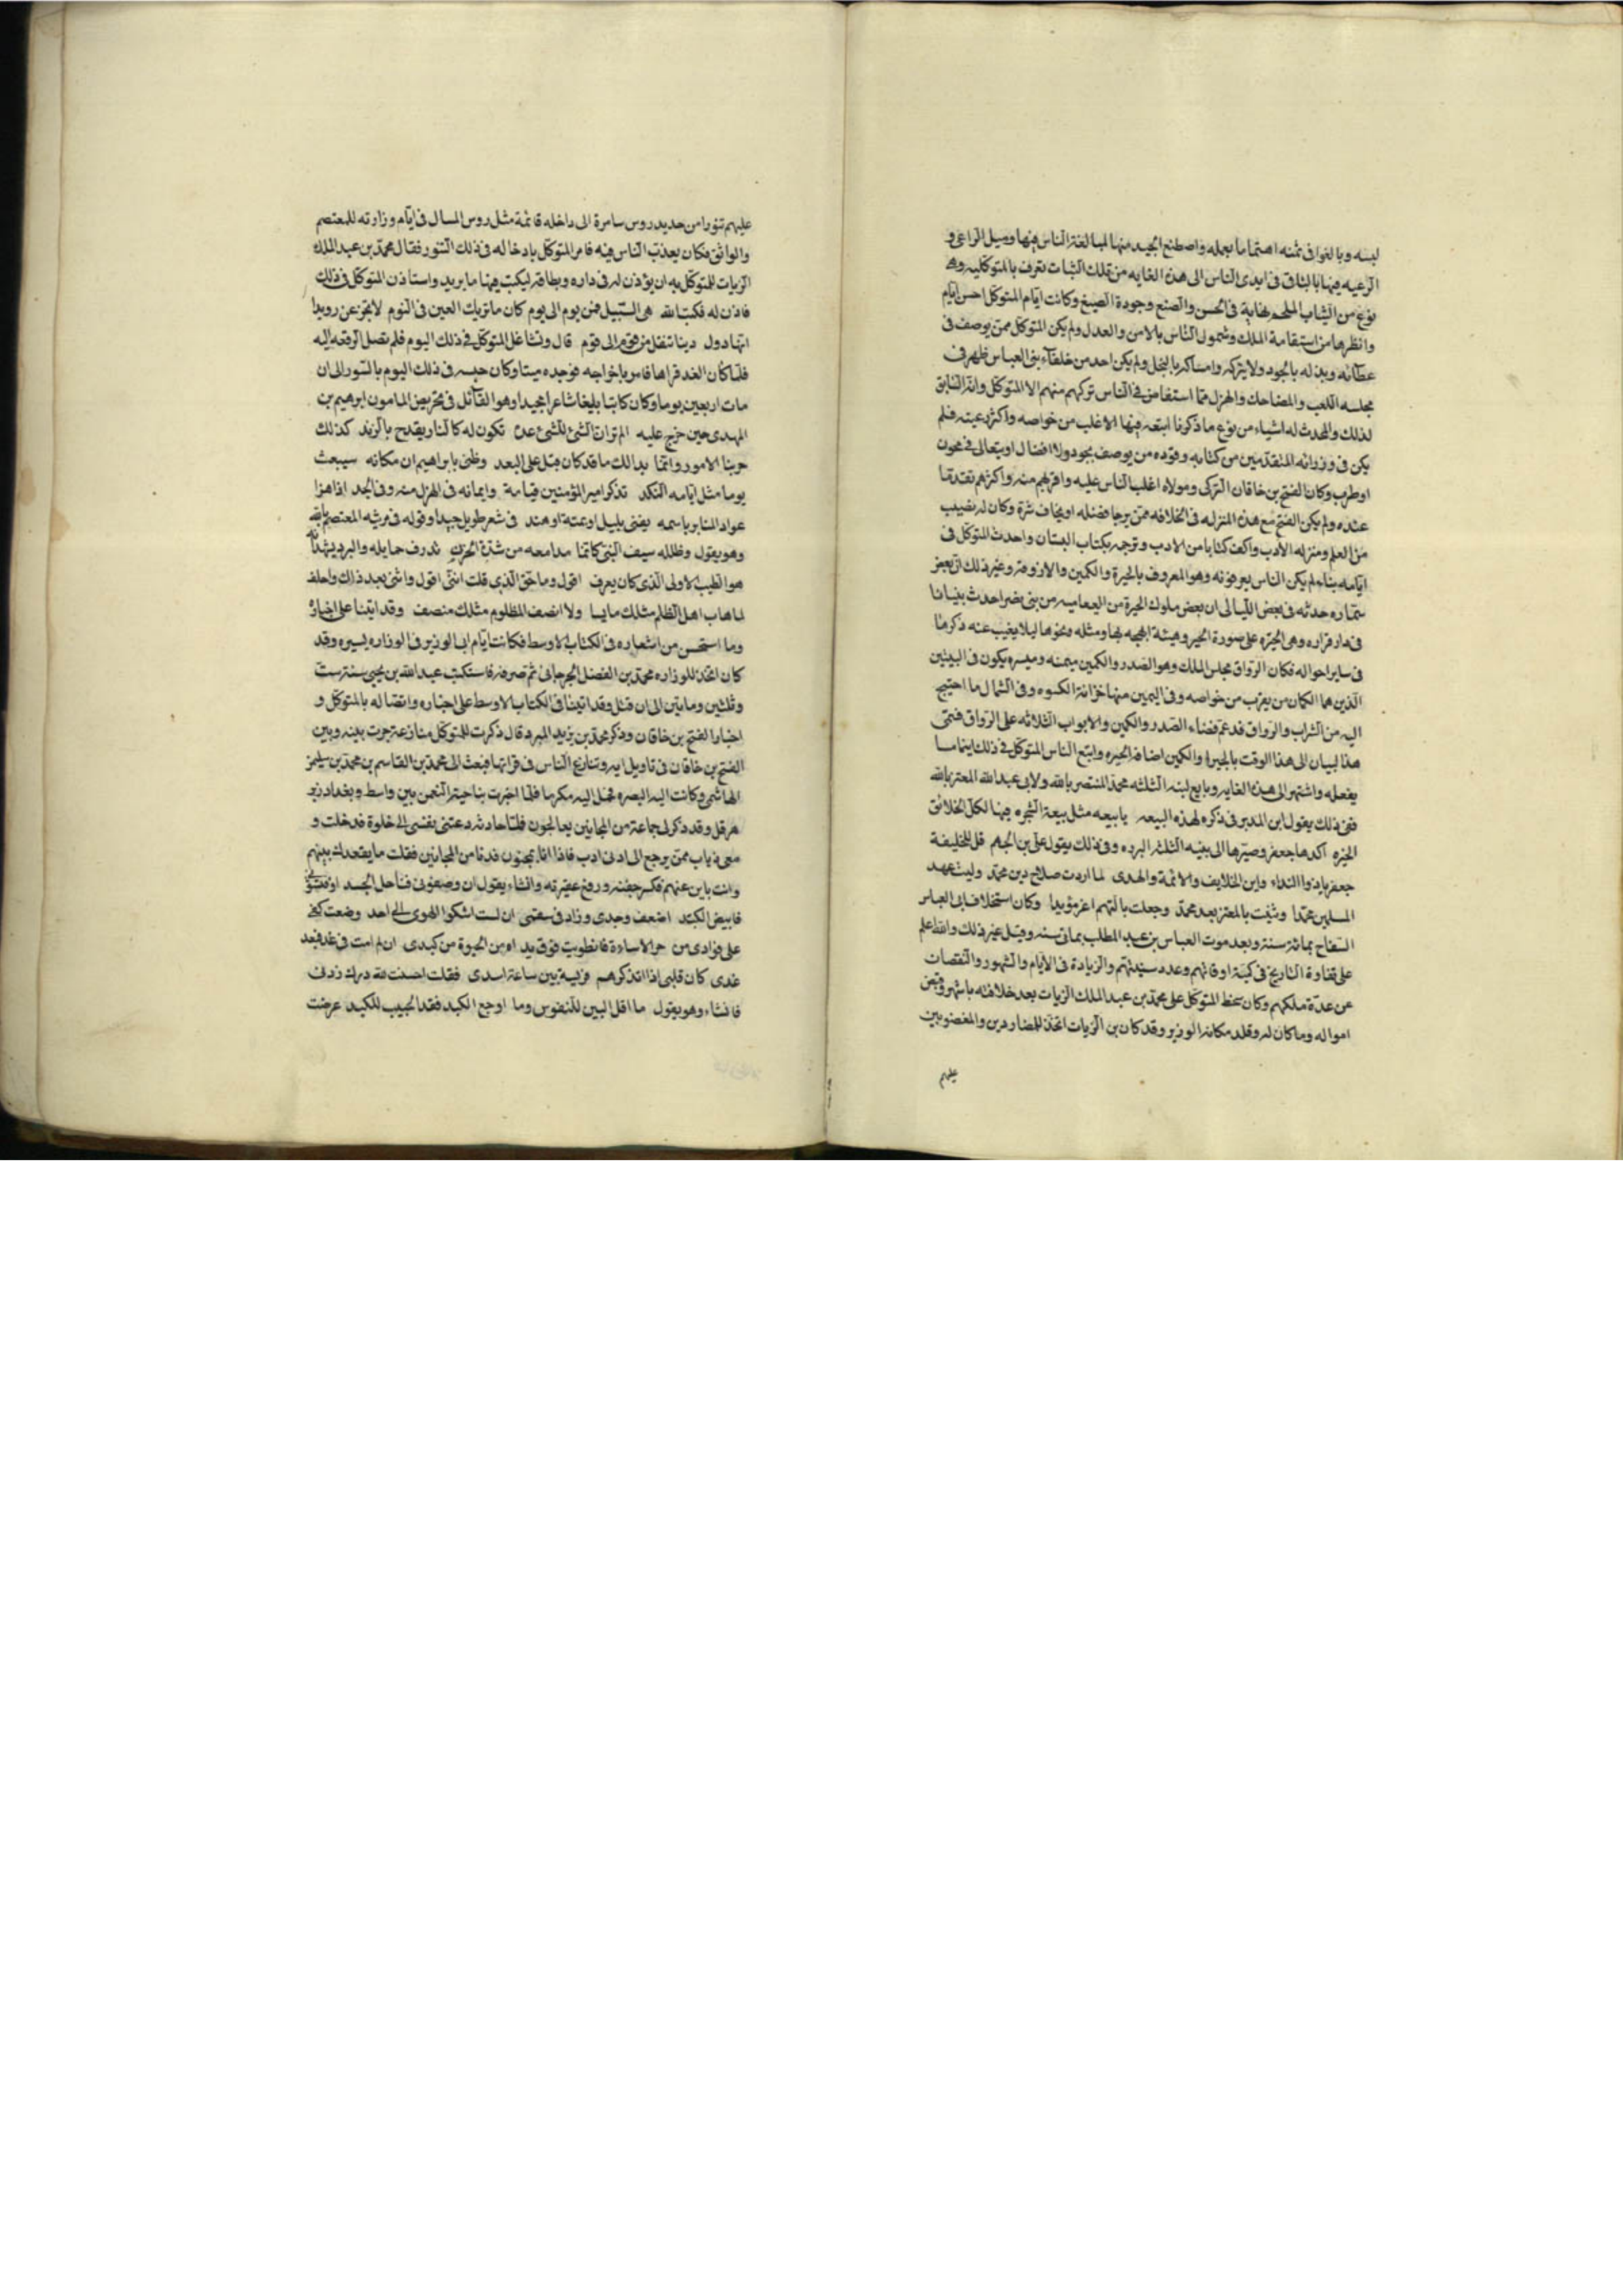 لبسه وبالغوا فى ثمنه اهتماما بعمله واصطنع الجيد منها لمبالغة الناس فيها وميل الراعى و
الرعيه فيها بالباقى فى ايدى الناس الى هذه الغايه من تلك الثياب تعرف بالمتوكليه وهى
نوع من الثياب الملحم نهاية فى الحسن والصنع وجودة الصبغ وكانت ايام المتوكل احسن ايام
وانظرها من استقامة الملك وشمول الناس بالامن والعدل ولم يكن المتوكل ممن يوصف فى
عطائه وبذله بالجود ولا بتركه وامساكه بالبخل ولم يكن احد من خلفاء بنى العباس ظهر فى
مجلسه اللعب والمضاحك والهزل مما استفاض فى الناس تركهم منهم الا المتوكل وانه السابق
لذلك والمحدث له اشياء من نوع ما ذكرنا اتبعه فيها الاغلب من خواصه واكثر رعيته فلم
يكن فى وزرائه المتقدمين من كتابه وقوده من يوصف بجود ولا افضال او يتعالى فى مجون
او طرب وكان الفتح بن خاقان التركى ومولاه اغلب الناس عليه واقربهم منه واكثرهم تقدما
عنده ولم يكن الفتح مع هذه المنزله فى الخلافه ممن يرجا فضله او يخاف شره وكان له نصيب
من العلم ومنزله الأدب والف كتابا من الادب وترجمه بكتاب البستان واحدث المتوكل فى
ايامه بناء لم يكن الناس يعرفونه وهو المعروف بالحيرة والكمين والاروقة وغير ذلك ان بعض
سماره حدثه فى بعض الليالى ان بعض ملوك الحيرة من من بنى نصر احدث بنيانا
فى دار قراره وهى الحيره على صورة الحير وهيئة لهجه بها ومثله ونحوها ليلا يغيب عنه ذكرها
فى ساير احواله فكان الرواق مجلس الملك وهو الصدر والكمين ميمنه وميسره يكون فى البيتين
الذين هما الكمان من يقرب من خواصه وفى اليمين منها خزانة الكسوه وفى الشمال ما احتيج
اليه من الشراب والرواق قد عم فضاء الصدر والكمين والابواب الثلاثه على الرواق فسمى
هذا لبيان الى هذا الوقت بالحيرا والكمين اضافة الحيره واتبع الناس المتوكل فى ذلك ايتماما
يفعله واشتهر الى هذه الغايه وبايع لبنه الثلثه محمد المنتصر بالله ولابى عبد الله المعتز بالله
ففى ذلك يقول ابن المدبر فى ذكره لهذه البيعه يا بيعه مثل بيعة الشجره فيها لكل الخلائق
الخيره اكدها جعفر وصيرها الى بنيه الثلثه البرده وفى ذلك يقول على بن الجهم قل للخليفة
جعفر ياذوا النداء وابن الخلايف والائمة والهدى لما اردت صلاح دين محمد وليت عهد
المسلمين محمدا وثنيت بالمعتز بعد محمد وجعلت بالثهم اعز مؤيدا وكان استخلاف ابى العباس
السفاح بمائة سنة وبعد موت العباس بن عبد المطلب بماتى سنه وقيل غير ذلك والله اعلم
على تفاوة التاريخ فى كمية اوقاتهم وعدد سنيهم والزيادة فى الأيام والشهور والنقصان
عن عدة ملكهم وكان سخط المتوكل على محمد بن عبد الملك الزيات بعد خلافته باشهر وقبض
امواله وما كان له وقلد مكانه الوزير وقد كان بن الزيات اتخذ للمصادرين والمغضوبين
عليهم
عليهم تنورا من حديد روس سامرة الى داخله قائمة مثل روس المسال فى ايام وزارته للمعتصم
والواثق فكان يعذب الناس فيه فامر المتوكل بادخاله فى ذلك التنور فقال محمد بن عبد الملك
الزيات للمتوكل به ان يؤذن له فى داره وبطاقة ليكتب فيها ما يريد واستاذن المتوكل فى ذلك
فاذن له فكتب الله هى السبيل فمن يوم الى يوم كان ما تريك العين فى النوم لا تجزعن رويدا
انها دول دينا تنقل من قوم الى قوم قال وتشاغل المتوكل فى ذلك اليوم فلم تصل الرقعه اليه
فلما كان الغد قراها فامر باخراجه فوجده ميتا وكان حبسه فى ذلك اليوم بالتنور الى ان
مات اربعين يوما وكان كاتبا بليغا شاعرا مجيدا وهو القائل فى تحريض المامون ابرهيم بن
المهدى حين خرج عليه الم تر ان الشئ للشئ عدة تكون له كالنار يقدح بالزند كذلك
جربنا الامور وانما يدلك ما قد كان قبل على البعد وظنى بابراهيم ان مكانه سيبعث
يوما مثل ايامه النكد تذكر امير المؤمنين قيامه وايمانه فى الهزل منه وفى الجد اذا هزا
عواد المنابر باسمه يغنى بليلى او عمية او هند فى شعر طويل جيدا وقوله فى مرثيه المعتصم بالله
وهو يقول وظله سيف النبى كانما مدامعه من شدة الحزن تذرف حمايله والبرد يشهد انه
هو الطيب الاولى الذى كان يعرف اقول وما حق الذى قلت اننى اقول واثنى بعد ذلك واحلف
لما هاب اهل الظلم مثلك مايسا ولا انصف المظلوم مثلك منصف وقد اتينا على اخباره
وما استحسن من اشعاره فى الكتاب الاوسط فكانت ايام ابى الوزير فى الوزاره يسيره وقد
كان اتخذ للوزاره محمد بن الفضل الجرجانى ثم صرفه فاستكتب عبد الله بن يحيى سنة ست
وثلثين وماتين الى ان قتل وقد اتينا فى الكتاب الاوسط على اخباره واتصاله بالمتوكل و
اخبار الفتح بن خاقان وذكر محمد بن يزيد المبرد قال ذكرت للمتوكل منازعة جرت بينه وبين
الفتح بن خاقان فى تاويل ايه وتنازع الناس فى قراتها فبعث الى محمد بن القاسم بن محمد بن سليمن
الهاشمى وكانت اليه البصره فحمل اليه مكرما فلما اجتزت بناحية النعمن بين واسط وبغداد بدير
هرقل وقد ذكر لى جماعة من المجانين يعالجون فلما حاذيته دعتنى نفسى الى خلوة فدخلت و
معى ذياب ممن يرجع الى ادنى ادب فاذا انا بمجنون قد دنا من المجانين فقلت ما يقعدك بينهم
وانت باين عنهم فكسر جفنه ورفع عقيرته وانشاء يقول ان وصفونى فناحل الجسد او فتشونى
فابيض الكبد اضعف وجدى وزاد فى سقمى ان لست اشكوا الهوى الى احد وضعت كفى
على فؤادى من حر الاساءة فانطويت فوق يد اه من الحيوة من كبدى ان لم امت فى غد فبعد
غدى كان قلبى اذا تذكرهم فريسة بين ساعة اسدى فقلت احسنت لله درك زدنى
فانشاء وهو يقول ما اقل البين للنفوس وما اوجع الكبد فقد الحبيب للكبد عرضت